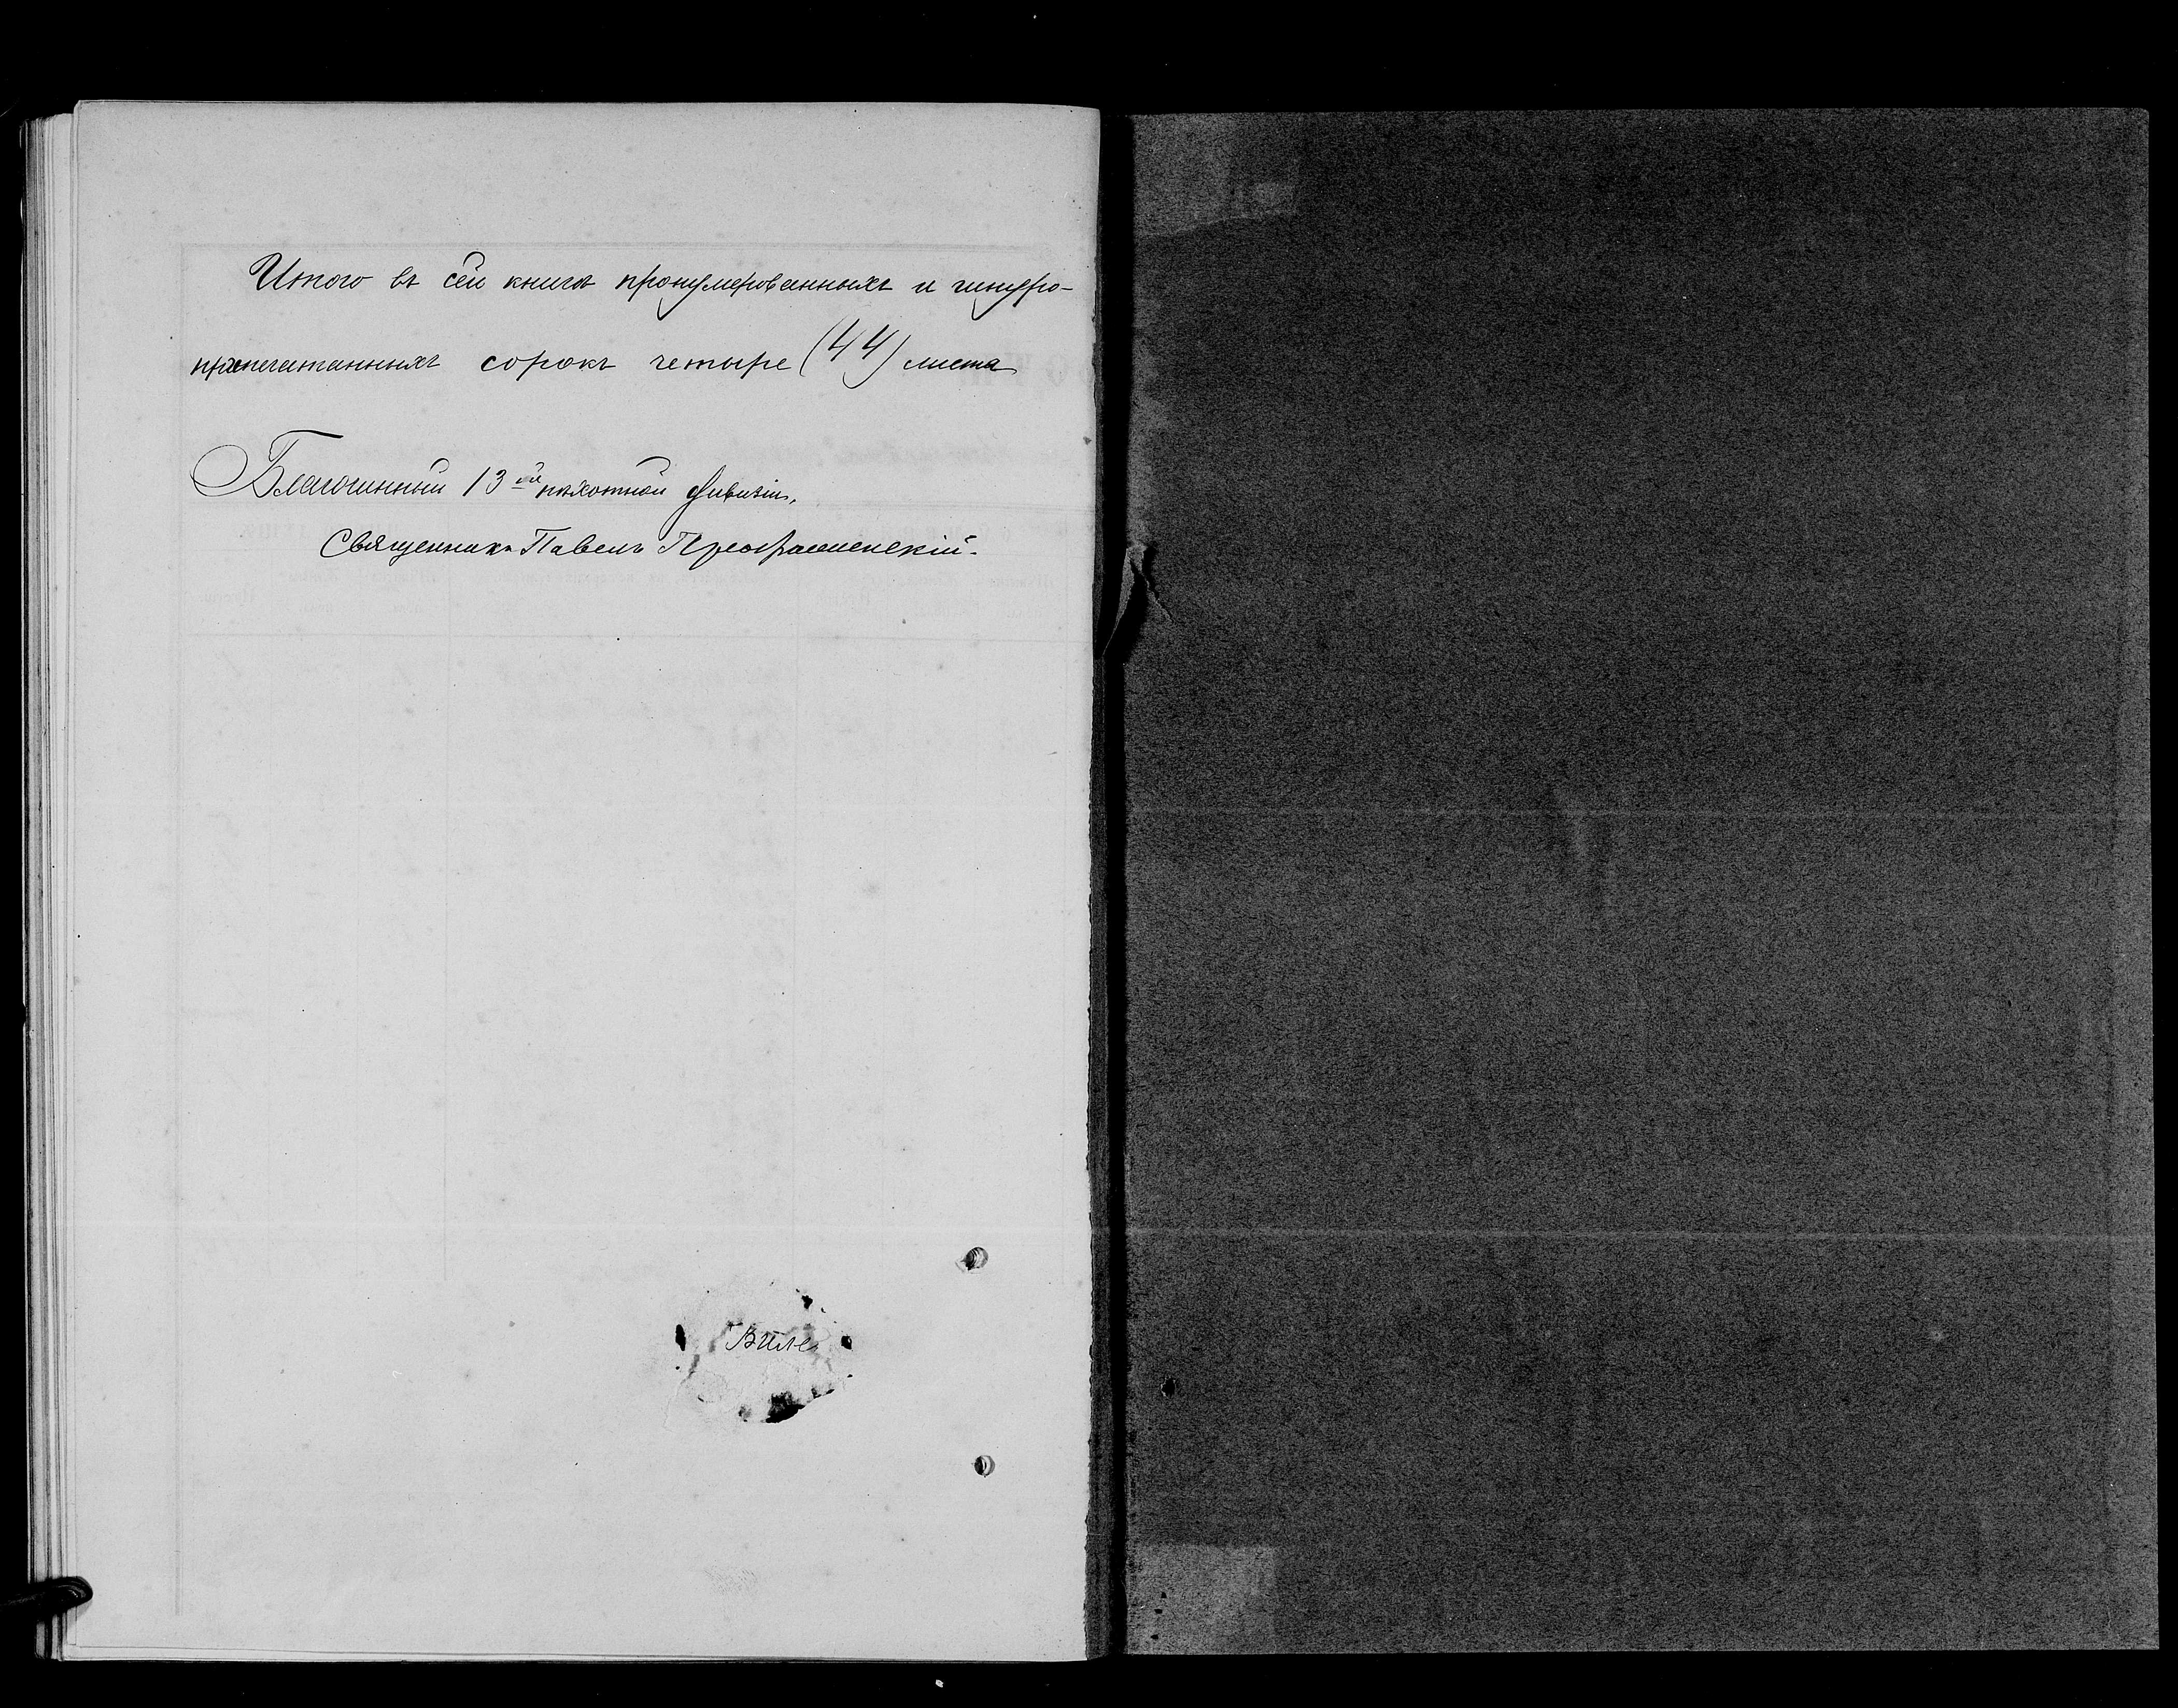 Итого въ сей книгѣ пронумерованныхъ и шнуро-
припечатанныхъ сорокъ четыре (44) листа
Благочинный 13 ой пѣхотной дивизіи,
Священникъ Павелъ Преображенскій.